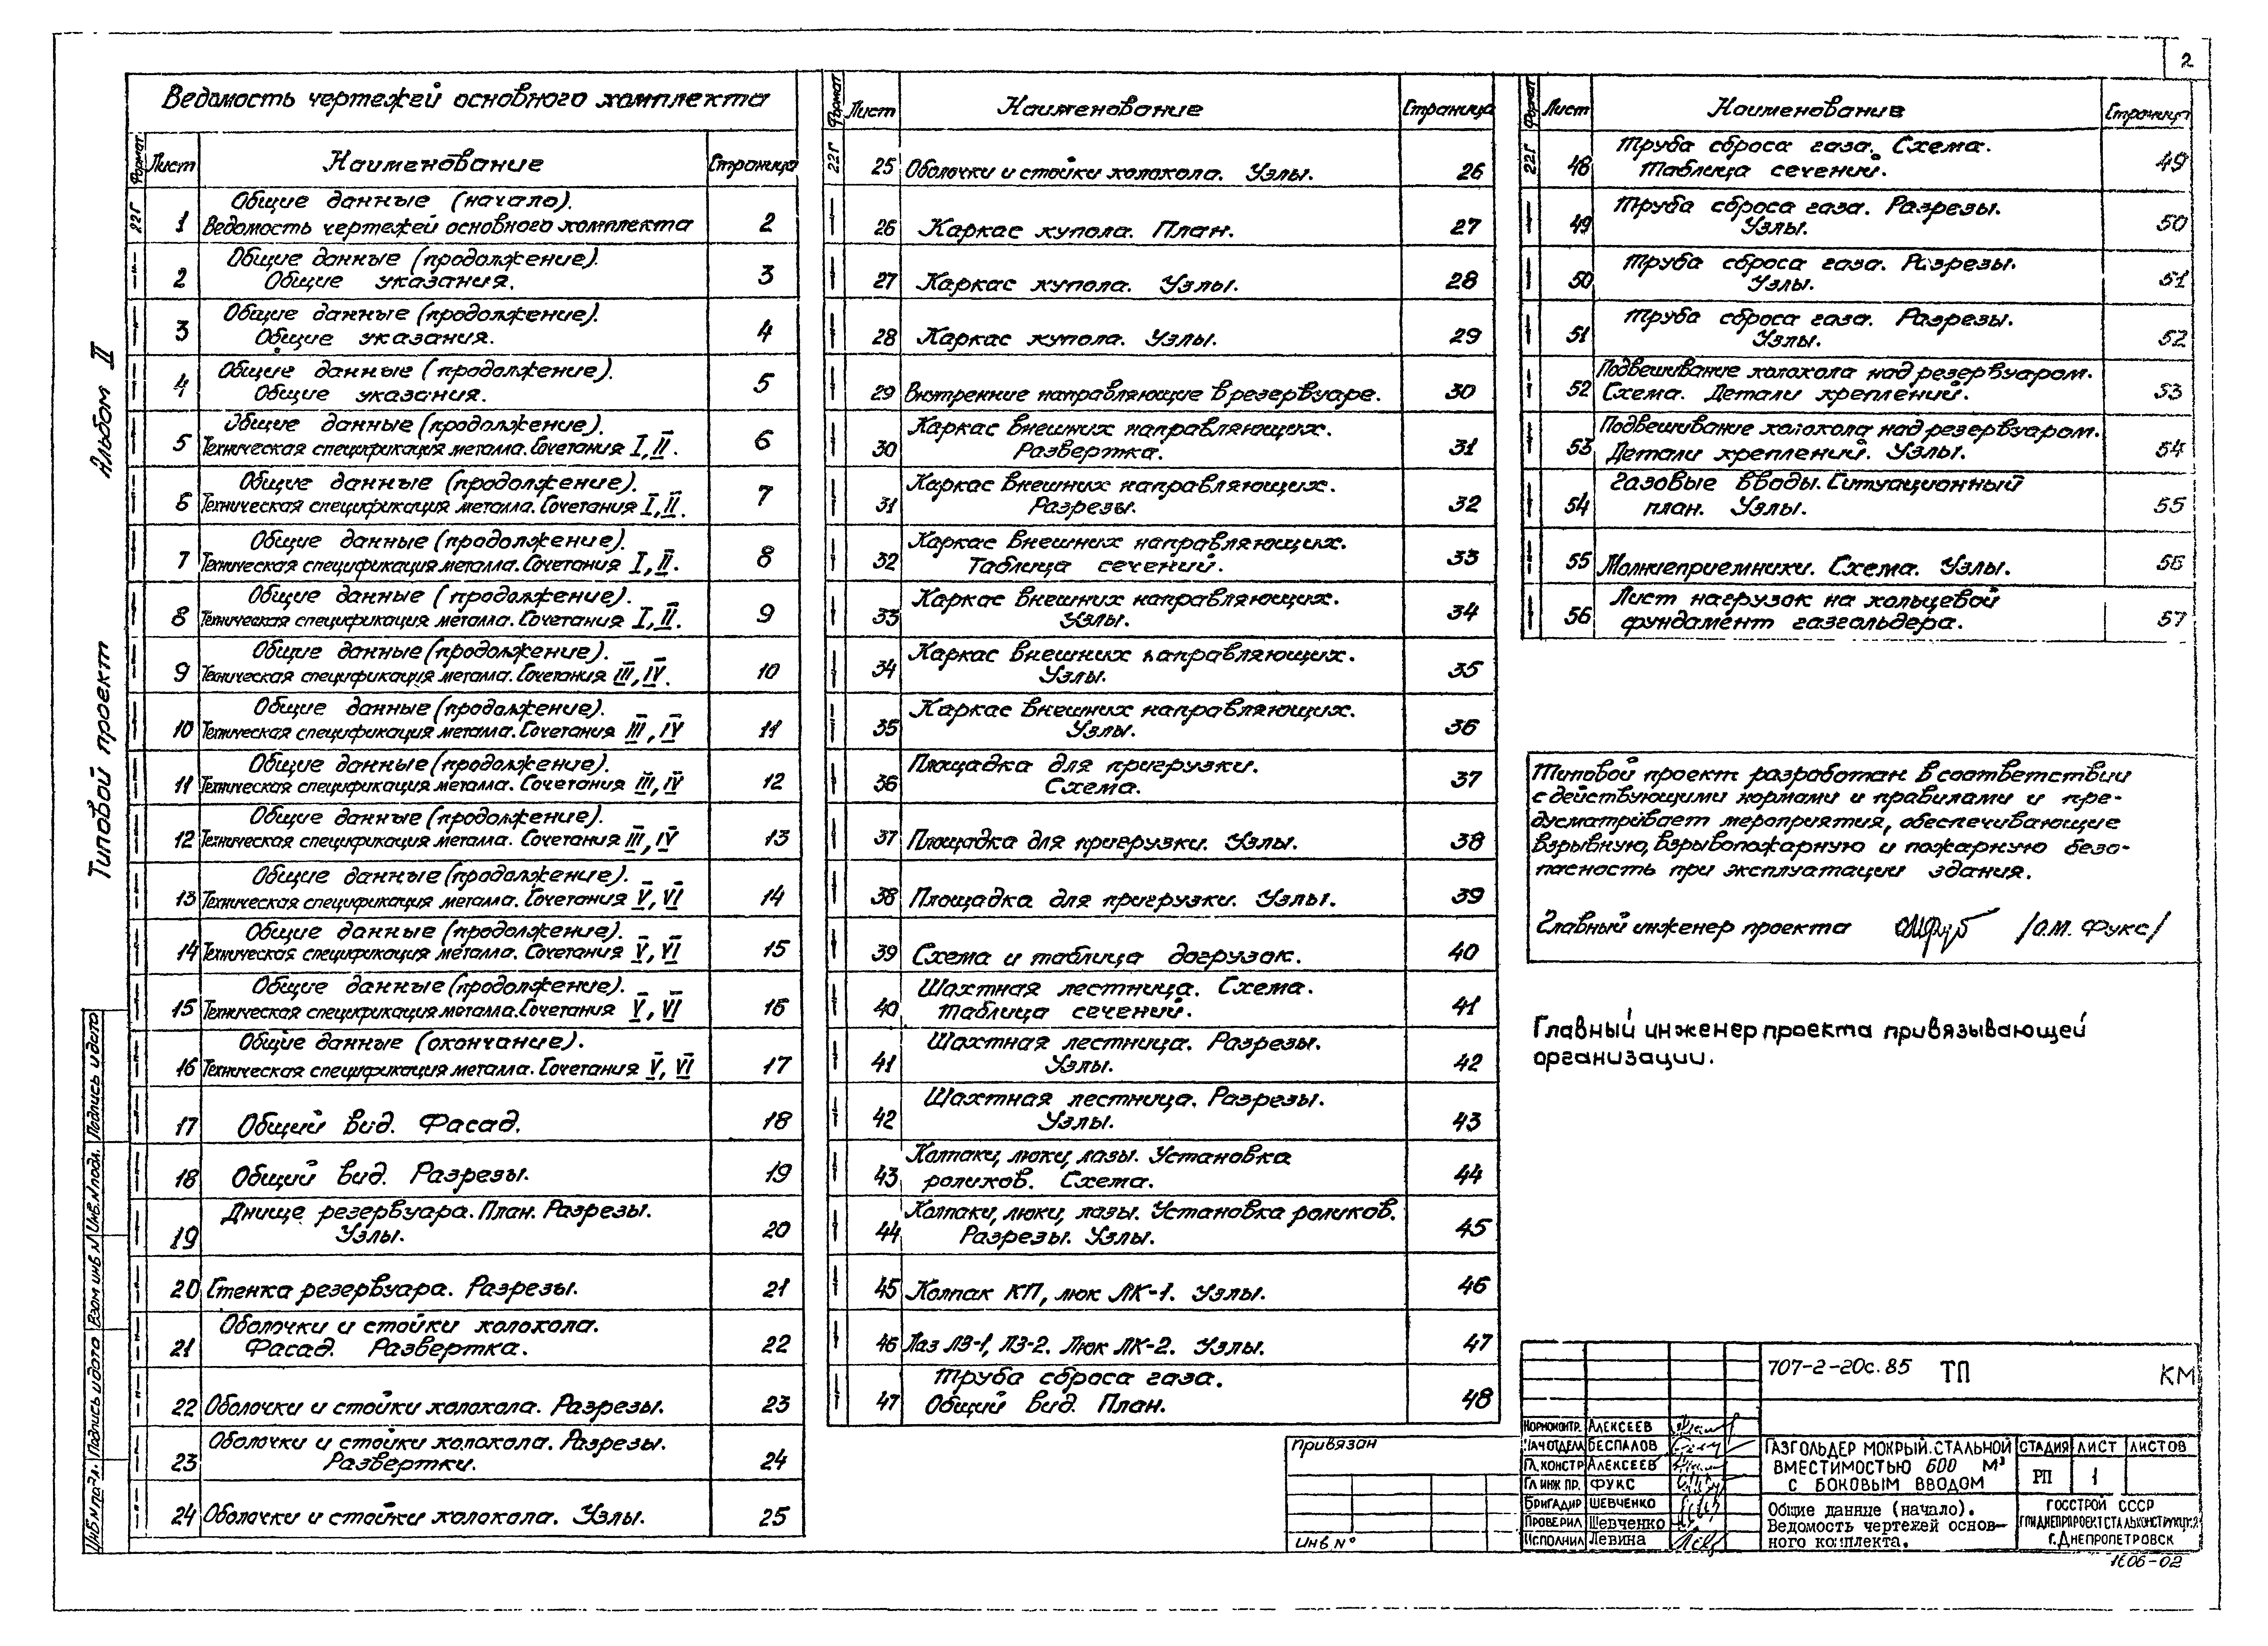 2
Альбом II
Типовой проект
Ведомость чертежей основного комплекта
Формат Лист Наименование Страница
22Г 1 Общие данные (начало). Ведомость чертежей основного комплекта 2
2 Общие данные (продолжение). Общие указания. 3
3 Общие данные (продолжение). Общие указания. 4
4 Общие данные (продолжение). Общие указания. 5
5 Общие данные (продолжение). Техническая спецификация металла. Сочетания I, II. 6
6 Общие данные (продолжение). Техническая спецификация металла. Сочетания I, II. 7
7 Общие данные (продолжение). Техническая спецификация металла. Сочетания I, II. 8
8 Общие данные (продолжение). Техническая спецификация металла. Сочетания I, II. 9
9 Общие данные (продолжение). Техническая спецификация металла. Сочетания III, IV. 10
10 Общие данные (продолжение). Техническая спецификация металла. Сочетания III, IV 11
11 Общие данные (продолжение). Техническая спецификация металла. Сочетания III, IV 12
12 Общие данные (продолжение). Техническая спецификация металла. Сочетания III, IV 13
13 Общие данные (продолжение). Техническая спецификация металла. Сочетания V, VI 14
14 Общие данные (продолжение). Техническая спецификация металла. Сочетания V, VI 15
15 Общие данные (продолжение). Техническая спецификация металла. Сочетания V, VI 16
16 Общие данные (окончание). Техническая спецификация металла. Сочетания V, VI 17
17 Общий вид. Фасад. 18
18 Общий вид. Разрезы. 19
19 Днище резервуара. План. Разрезы. Узлы. 20
20 Стенка резервуара. Разрезы. 21
21 Оболочки и стойки колокола. Фасад. Развертка. 22
22 Оболочки и стойки колокола. Разрезы. 23
23 Оболочки и стойки колокола. Разрезы. Развертки. 24
24 Оболочки и стойки колокола. Узлы. 25
Формат Лист Наименование Страница
22Г 25 Оболочки и стойки колокола. Узлы. 26
26 Каркас купола. План. 27
27 Каркас купола. Узлы. 28
28 Каркас купола. Узлы. 29
29 Внутренние направляющие в резервуаре. 30
30 Каркас внешних направляющих. Развертка. 31
31 Каркас внешних направляющих. Разрезы. 32
32 Каркас внешних направляющих. Таблица сечений. 33
33 Каркас внешних направляющих. Узлы. 34
34 Каркас внешних направляющих. Узлы. 35
35 Каркас внешних направляющих. Узлы. 36
36 Площадка для пригрузки. Схема. 37
37 Площадка для пригрузки. Узлы. 38
38 Площадка для пригрузки. Узлы. 39
39 Схема и таблица догрузок. 40
40 Шахтная лестница. Схема. Таблица сечений. 41
41 Шахтная лестница. Разрезы. Узлы. 42
42 Шахтная лестница. Разрезы. Узлы. 43
43 Колпаки, люки, лазы. Установка роликов. Схема. 44
44 Колпаки, люки, лазы. Установка роликов. Разрезы. Узлы. 45
45 Колпак КП, люк ЛК-1. Узлы. 46
46 Лаз ЛЗ-1, ЛЗ-2. Люк ЛК-2. Узлы. 47
47 Труба сброса газа. Общий вид. План. 48
Формат Лист Наименование Страница
22Г 48 Труба сброса газа. Схема. Таблица сечений. 49
49 Труба сброса газа. Разрезы. Узлы. 50
50 Труба сброса газа. Разрезы. Узлы. 51
51 Труба сброса газа. Разрезы. Узлы. 52
52 Подвешивание колокола над резервуаром. Схема. Детали креплений. 53
53 Подвешивание колокола над резервуаром. Детали креплений. Узлы. 54
54 Газовые вводы. Ситуационный план. Узлы. 55
55 Молниеприемники. Схема. Узлы. 56
56 Лист нагрузок на кольцевой фундамент газгольдера. 57
Типовой проект разработан в соответствии
с действующими нормами и правилами и пре-
дусматривает мероприятия, обеспечивающие
взрывную, взрывопожарную и пожарную безо-
пасность при эксплуатации здания.
Главный инженер проекта /О.М. Фукс/
Главный инженер проекта привязывающей
организации.
Привязан
Инв №
707-2-20с.85 ТП КМ
Нормоконтр. Алексеев
Нач отдела Беспалов
Гл. констр Алексеев
Гл инж пр. Фукс
Бригадир Шевченко
Проверил Шевченко
Исполнил Левина
Газгольдер мокрый стальной
вместимостью 600 м³
с боковым вводом
Стадия Лист Листов
РП 1
Общие данные (начало).
Ведомость чертежей основ-
ного комплекта.
Госстрой СССР
г. Днепропетровск
Подпись и дата
Инв. № подл.
Взам инв №
Подпись и дата